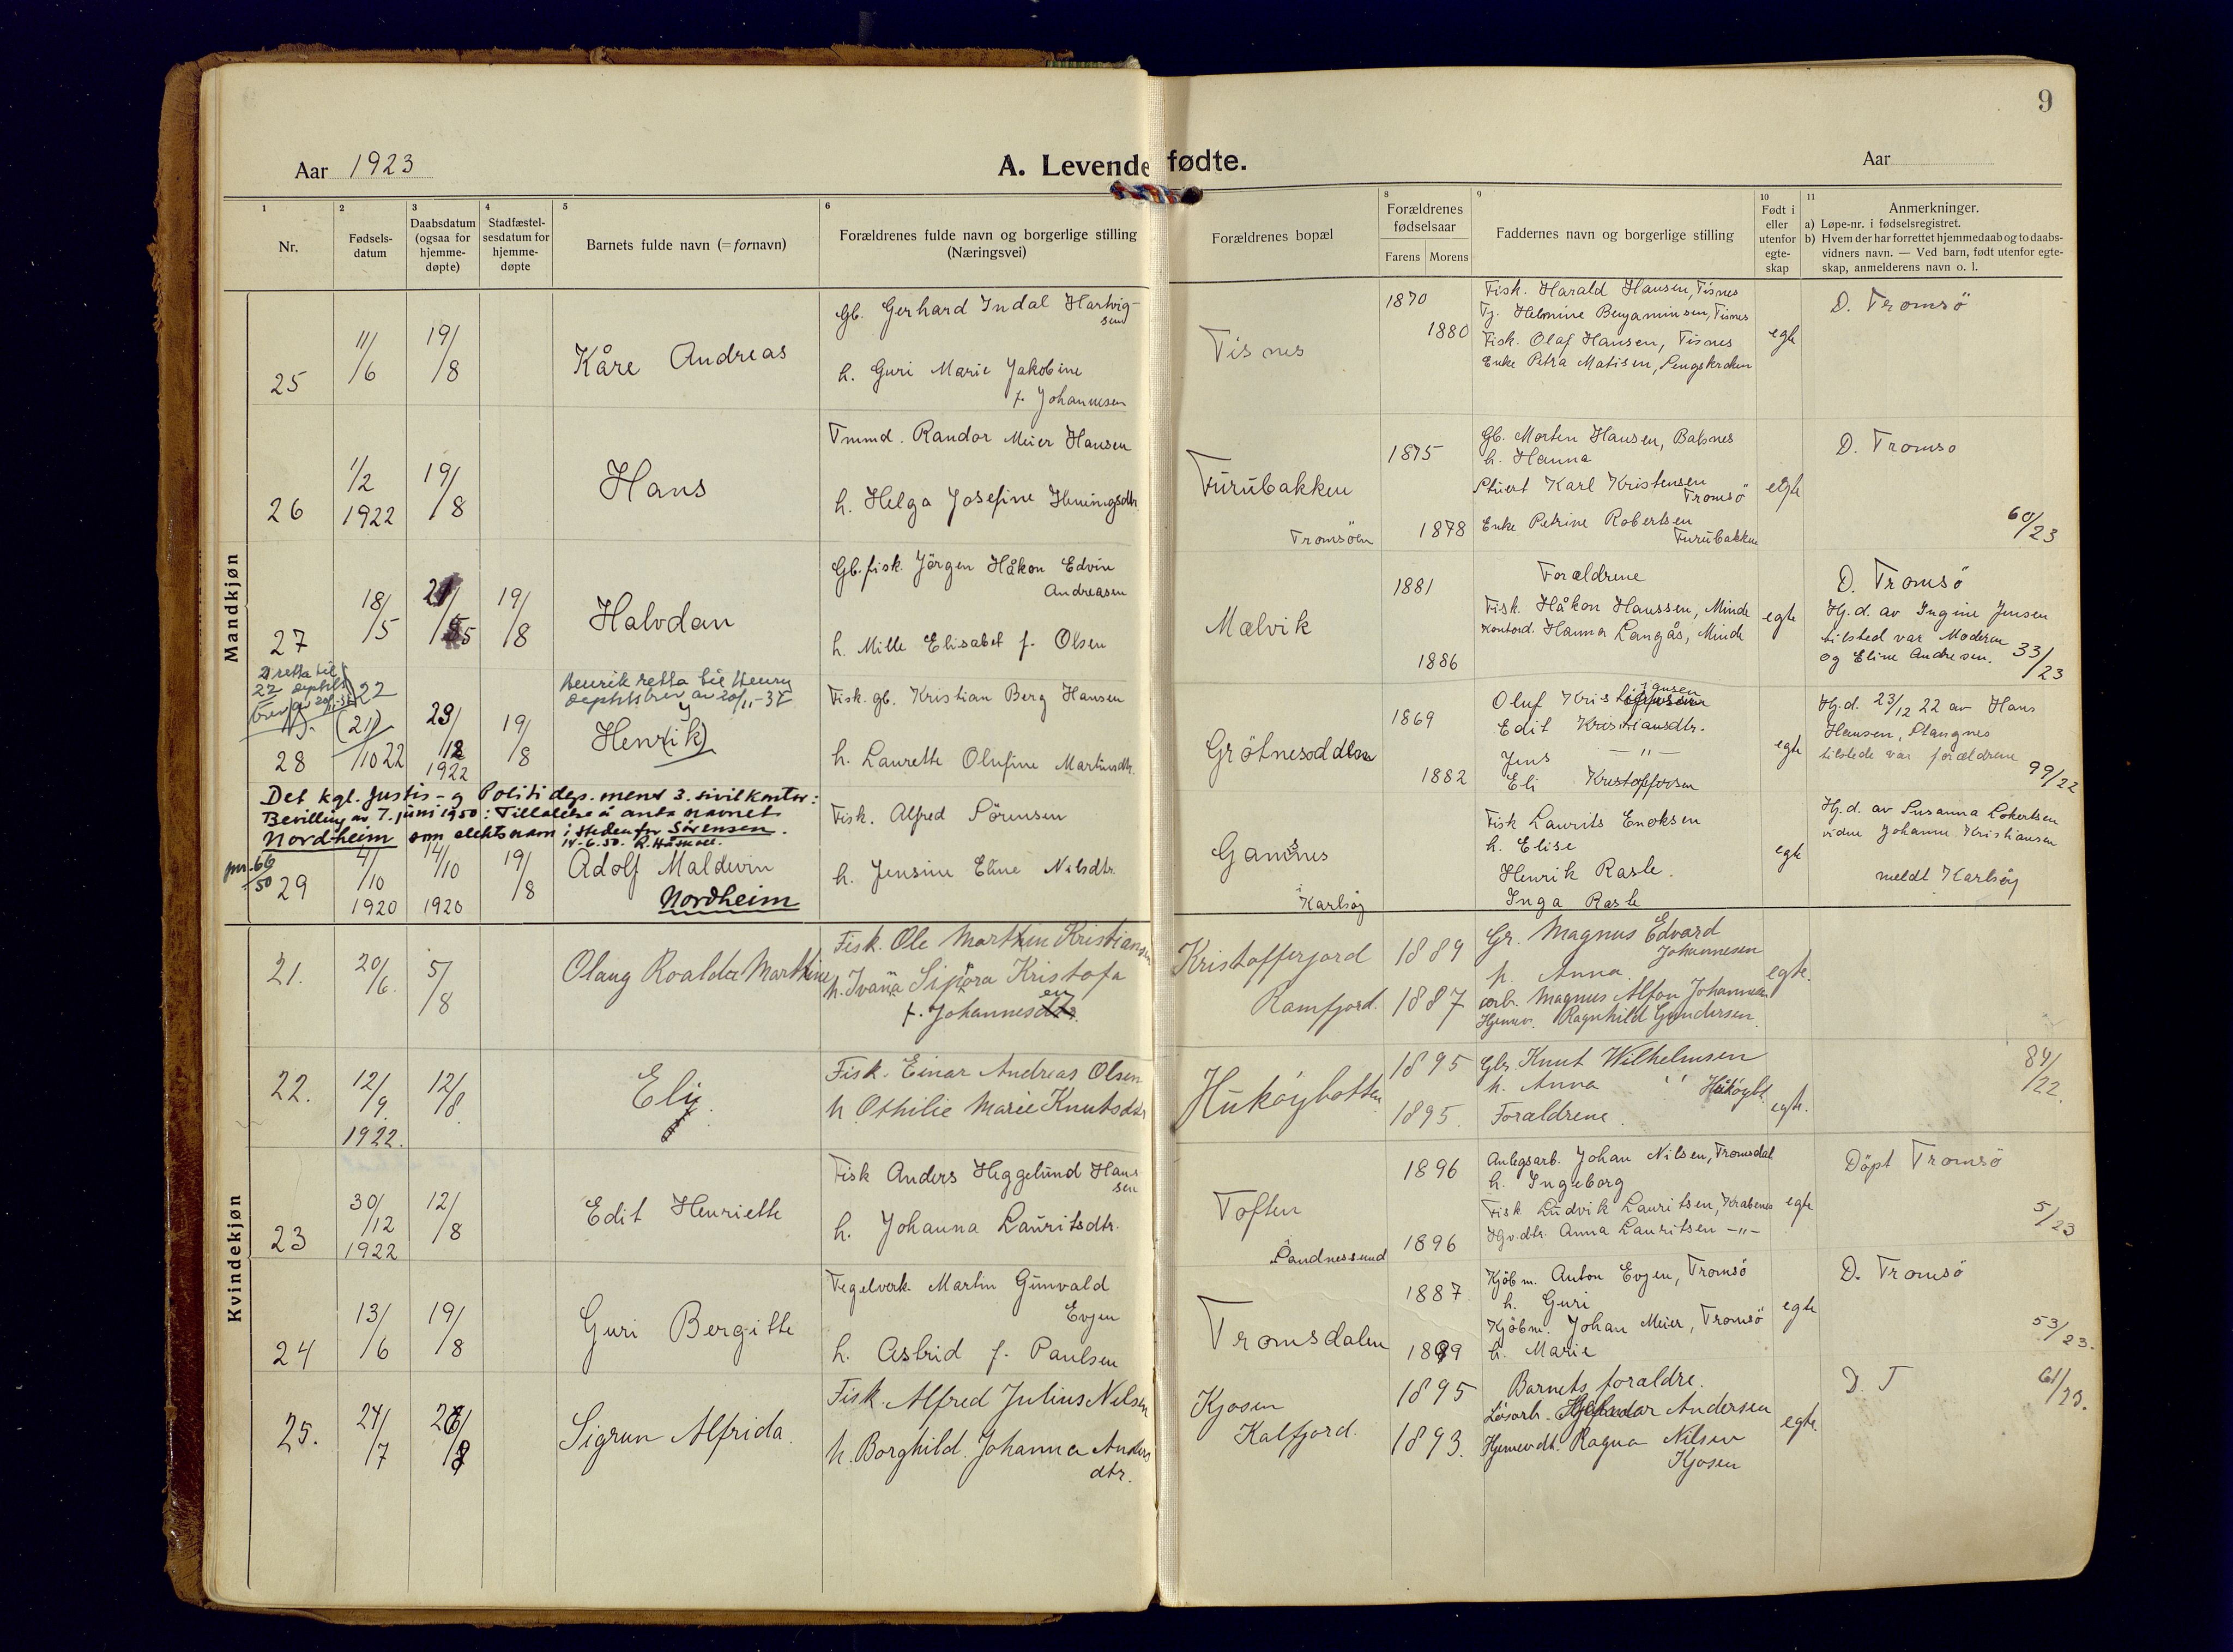 9
Aar 1923
A. Levende fødte.
Aar
1 Nr.
2 Fødsels-datum
3 Daabsdatum (ogsaa for hjemme-døpte)
4 Stadfæstel-sesdatum for hjemme-døpte
5 Barnets fulde navn (= fornavn)
6 Forældrenes fulde navn og borgerlige stilling (Næringsvei)
Forældrenes bopæl
8 Forældrenes fødselsaar
Farens Morens
9 Faddernes navn og borgerlige stilling
10 Født i eller utenfor egte-skap
11 Anmerkninger.
a) Løpe-nr. i fødselsregistret.
b) Hvem der har forrettet hjemmedaab og to daabs-
vidners navn. — Ved barn, født utenfor egte-
skap, anmelderens navn o. l.
Mandkjøn
25 11/6 19/8 Kåre Andreas
Gb. Gerhard Indal Hartvig-
sen
h. Guri Marie Jakobine
f. Johannesen
Tisnes
1870
1880
Fisk. Harald Hansen, Tisnes
Tj. Helmine Benjaminsen, Tisnes
Fisk. Olaf Hansen, Tisnes
Enke Petra Matisen, Lengskroken
egte
D. Tromsö
26 1/2 1922 19/8 Hans
Tmmd. Randor Meier Hansen
h. Helga Josefine Heningsdtr.
Furubakken
Tromsöen
1875
1878
Gb. Morten Hansen, Balsnes
h. Hanna
Stuert Karl Kristensen
Tromsö
Enke Petrine Robertsen
Furubakken
egte
D. Tromsö
60/23
27 18/5 21/5 19/8 Halvdan
Gb. fisk. Jörgen Håkon Edvin
Andreasen
h. Mille Elisabet f. Olsen
Mælvik
1881
1886
Forældrene
Fisk. Håkon Hanssen, Minde
Kontord. Hanna Langås, Minde
egte
D. Tromsö
Hj.d. av Ingine Jensen
tilsted var Moderen
og Eline Andresen.
33/23
21 retta til
22
brev av 20/11-37
22
Henrik retta til Henry
brev av 20/11-37
28 (21)/10 22 23/12 1922 19/8 Henr(ik) y
Fisk. gb. Kristian Berg Hansen
h. Laurette Olufine Martinsdtr.
Grötnesodden
1869
1882
Oluf Kristiansen
Edit Kristiansdtr.
Jens — " —
Eli Kristoffersen
egte
Hj.d. 23/12 22 av Hans
Hansen, Stangnes
tilstede var forældrene
99/22
Det kgl. Justis- og Politidep.ment 3. sivilkontor:
Bevilling av 7. juni 1950: Tillatelse å anta navnet
Nordheim som slektsnavn i steden for Sörensen.
14-6.50.
66/50
29 4/10 1920 14/10 1920 19/8 Adolf Maldevin
Nordheim
Fisk. Alfred Sörensen
h. Jensine Eline Nilsdtr.
Gamnes
i Karlsöy
Fisk Laurits Enoksen
h. Elise
Henrik Rasle.
Inga Rasle
egte
Hj.d. av Susanna Lokertsen
viden Johanne Kristiansen
meldt Karlsöy
Kvindekjøn
21. 20/6. 5/8 Olaug Roalda Martine
Fisk. Ole Martin Kristiansen
h. Ivana Sipora Kristofa
f. Johannesen
Kristofferjord
Ramfjord.
1889
1887
Gr. Magnus Edvard
Johannesen
h. Anna.
arb. Magnus Alfon Johannesen
Hjemev. Ragnhild Gundersen.
egte.
22. 12/9. 1922. 12/8. Eli
Fisk. Einar Andreas Olsen
h. Othilie Marie Knutsdtr
Hukøybotten
1895
1895.
Gbr. Knut Wilhelmsen
h. Anna " Hukøybt.
Forældrene.
egte.
84/22.
23 30/12 1922 12/8 Edit Henriette
Fisk Anders Heggelund Hans
sen
h. Johanna Lauritsdtr.
Toften
i Sandnessund
1896
1896
Anlegsarb. Johan Nilsen, Tromsdal
h. Ingeborg
Fisk Ludvik Lauritsen, Krabenes
Hgv.dtr. Anna Lauritsen — " —
egte
Döpt Tromsö
5/23
24 13/6 19/8 Guri Bergitte
Tegelverk. Martin Gunvald
Evjen
h. Astrid f. Paulsen
Tromsdalen
1887
1899
Kjöbm. Anton Evjen, Tromsö
h. Guri
Kjöbm. Johan Meier, Tromsö
h. Marie
egte
D. Tromsö
53/23.
25. 24/7 26/8 Sigrun Alfrida.
Fisk. Alfred Julius Nilsen
h. Borghild Johanna Anders
dtr.
Kjosen
Kalfjord.
1895
1893.
Barnets foraldre.
Løsarb. Andersen
Hjemevdt. Ragna Nilsen
Kjosen
egte.
D. T
61/23.